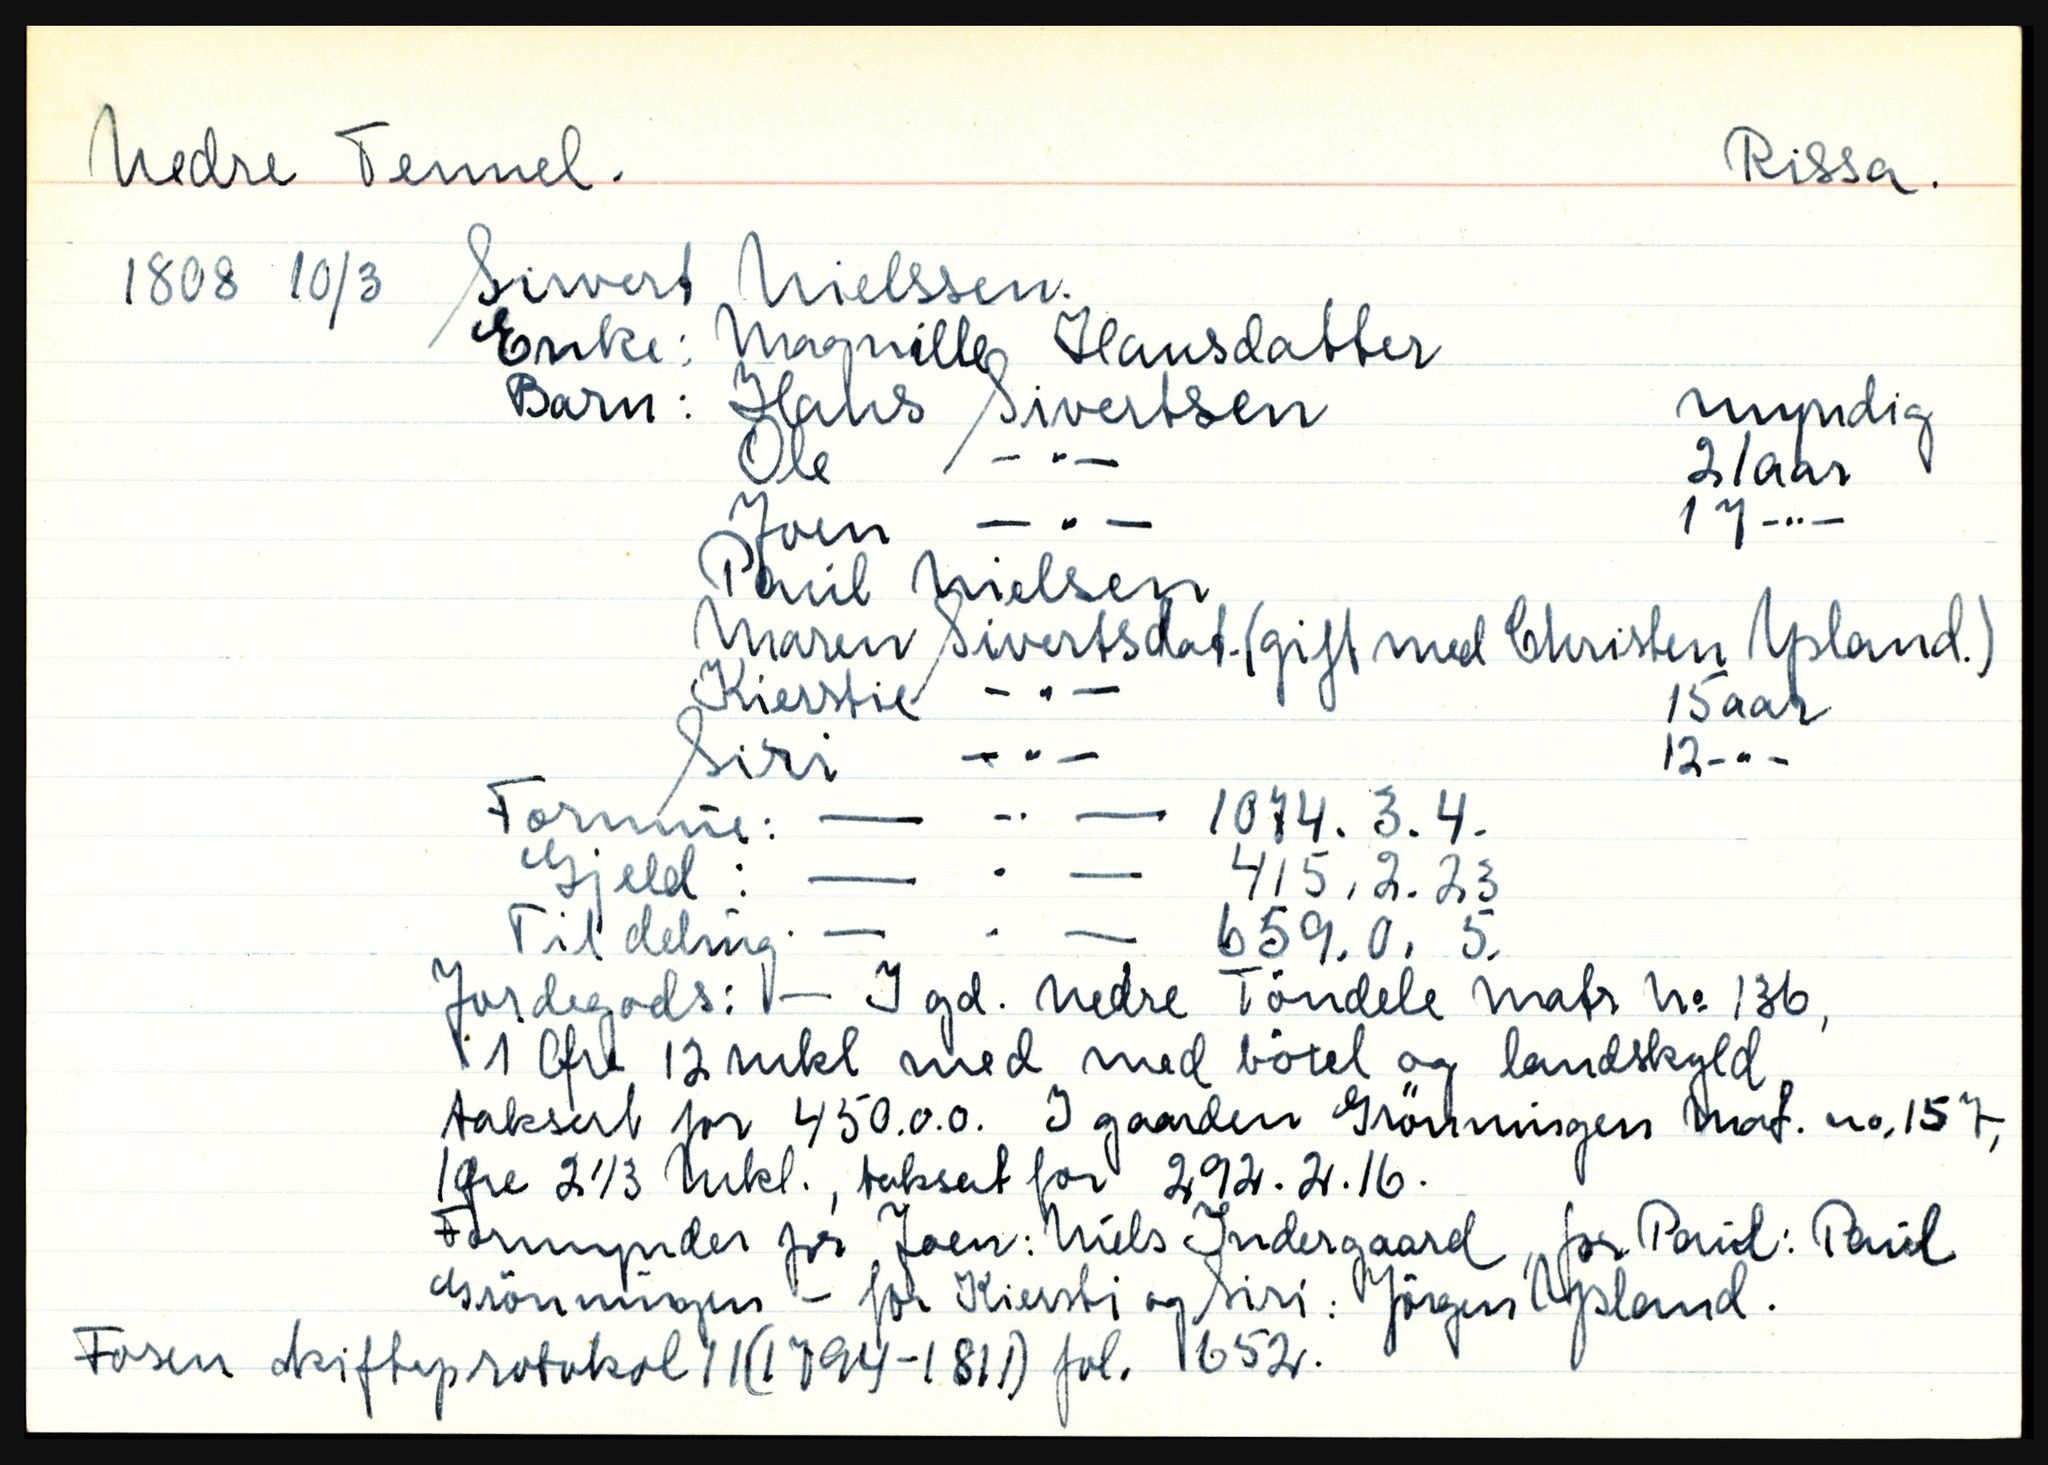 Nedre Tennel. Rissa.
1808 10/3 Sivert Nielssen.
Enke: Magnille Hansdatter
Barn: Hans Sivertsen myndig
Ole — " — 21 aar
Joen — " — 17 - " -
Paul Nielsen
Maren Sivertsdat. (gift med Christen Upland.)
Kierstie — " — 15 aar
Siri — " — 12 - " -
Formue: — " — 1074. 3. 4.
Gjeld: — " — 415. 2. 23
Til deling. — " — 659. 0. 5.
Jordegods: — I gd. nedre Töndele matr No 136,
1 Øre 12 mkl med med böxel og landskyld
taksert for 450.0.0. I gaarden Grönningen Mat. no. 157,
1 Øre 2 1/3 Mkl., taksert for 292. 2. 16.
Formynder for Joen: Niels Indergaard, for Paul: Paul
Grönningen - for Kiersti og Siri: Jörgen Upland.
Fosen skifteprotokol 11 (1794-1811) fol. 652.